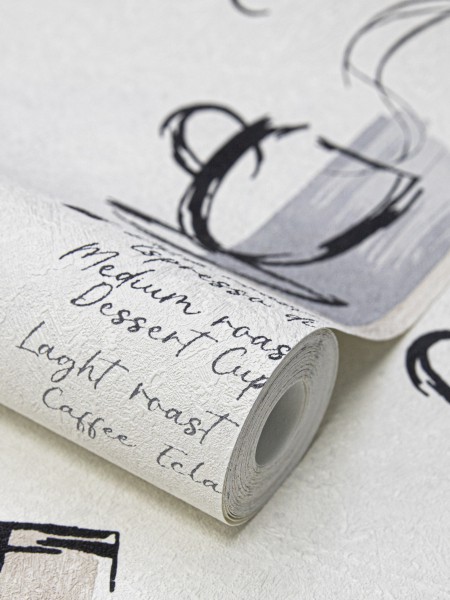 Espresso
Medium roast
Dessert Cup
Laght roast
Caffee Ecla